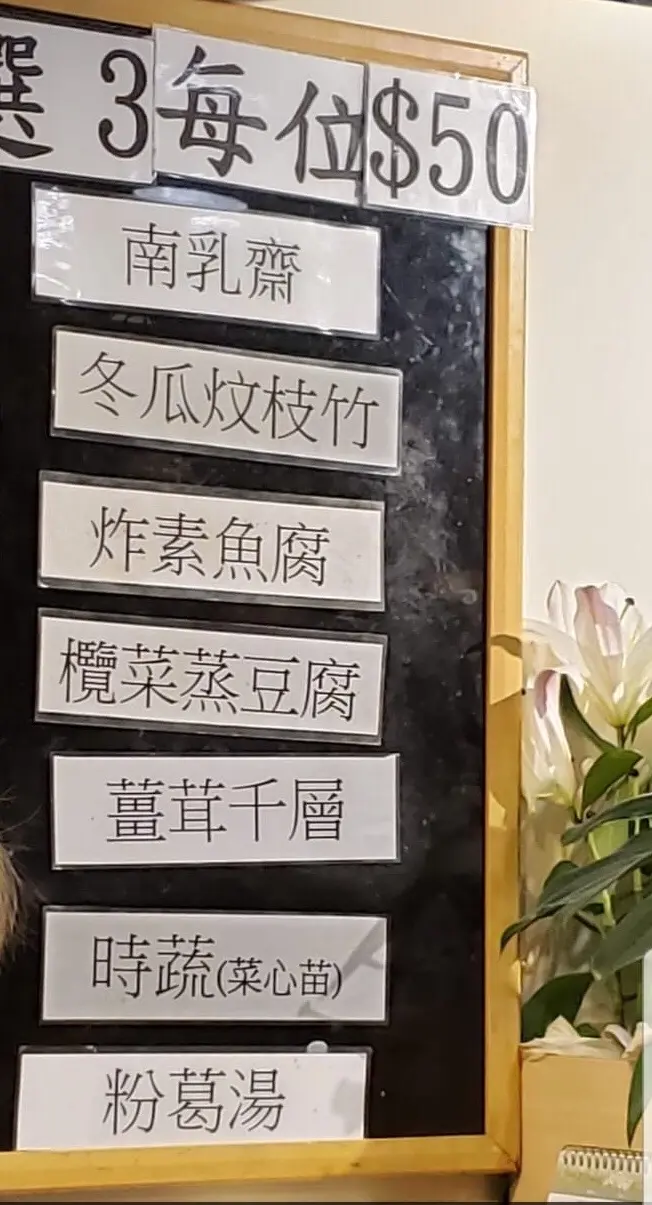 選 3 每位 $50
南乳齋
冬瓜炆枝竹
炸素魚腐
欖菜蒸豆腐
薑茸千層
時蔬(菜心苗)
粉葛湯